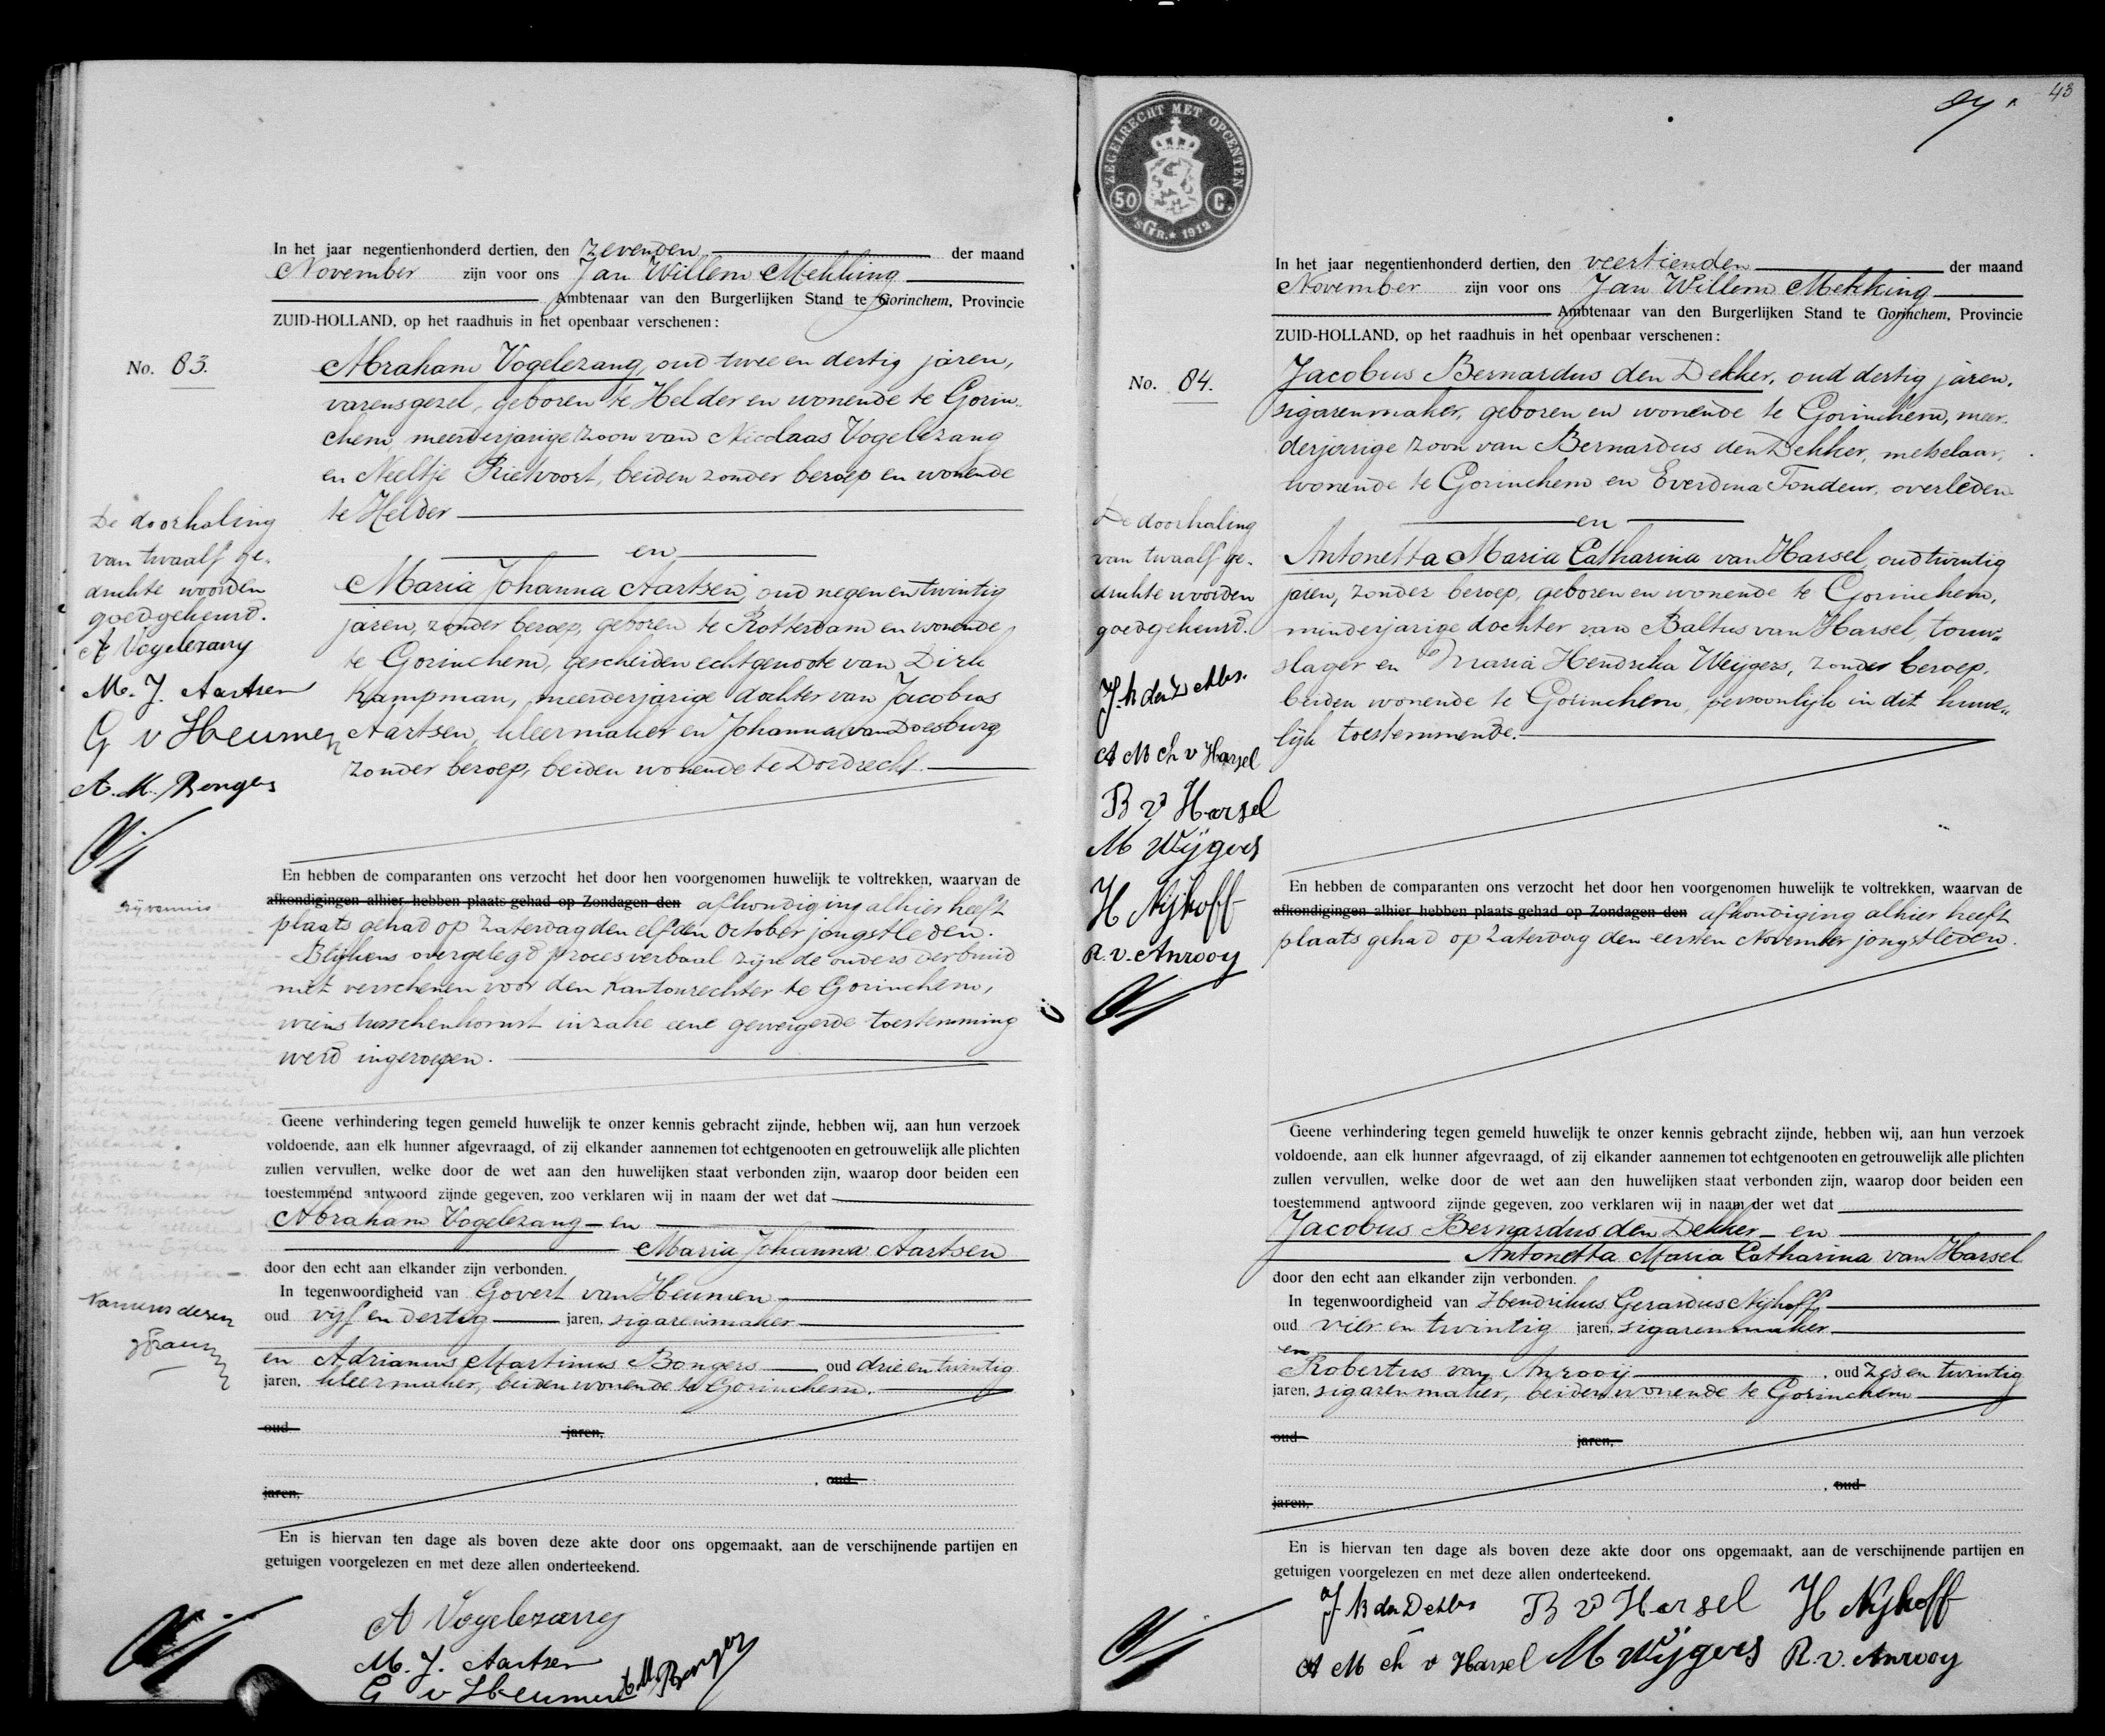 In het jaar negentienhonderd dertien, den zevenden der maand
November zijn voor ons Jan Willem Mekking
Ambtenaar van den Burgerlijken Stand te Gorinchem, Provincie
ZUID-HOLLAND, op het raadhuis in het openbaar verschenen:
No. 83.
Abraham Vogelezang, oud twee en dertig jaren,
varensgezel, geboren te Helder en wonende te Gorin-
chem, meerderjarige zoon van Nicolaas Vogelezang
en Neeltje Rietvoort, beiden zonder beroep en wonende
te Helder
en
Maria Johanna Aartsen, oud negen en twintig
jaren, zonder beroep, geboren te Rotterdam en wonende
te Gorinchem, gescheiden echtgenoote van Dirk
Kampman, meerderjarige dochter van Jacobus
Aartsen, kleermaker en Johanna van Doesburg
zonder beroep, beiden wonende te Dordrecht.
De doorhaling
van twaalf ge-
drukte woorden
goedgekeurd.
A Vogelezang
M. J. Aartsen
G v Heumen
A. M. Bongers
En hebben de comparanten ons verzocht het door hen voorgenomen huwelijk te voltrekken, waarvan de
afkondigingen alhier hebben plaats gehad op Zondagen den afkondiging alhier heeft
plaats gehad op Zaterdag den elfden October jongstleden.
Blijkens overgelegd proces verbaal zijn de ouders der bruid
niet verschenen voor den Kantonrechter te Gorinchem,
wiens tusschenkomst inzake eene geweigerde toestemming
werd ingeroepen.
Geene verhindering tegen gemeld huwelijk te onzer kennis gebracht zijnde, hebben wij, aan hun verzoek
voldoende, aan elk hunner afgevraagd, of zij elkander aannemen tot echtgenooten en getrouwelijk alle plichten
zullen vervullen, welke door de wet aan den huwelijken staat verbonden zijn, waarop door beiden een
toestemmend antwoord zijnde gegeven, zoo verklaren wij in naam der wet dat
Abraham Vogelezang en
Maria Johanna Aartsen
door den echt aan elkander zijn verbonden.
In tegenwoordigheid van Govert van Heumen
oud vijf en dertig jaren, sigarenmaker
en Adrianus Martinus Bongers oud drie en twintig
jaren, kleermaker, beiden wonende te Gorinchem.
oud jaren,
, oud
jaren,
En is hiervan ten dage als boven deze akte door ons opgemaakt, aan de verschijnende partijen en
getuigen voorgelezen en met deze allen onderteekend.
A Vogelezang
M. J. Aartsen
G v Heumen A. M. Bongers
43
84
ZEGELRECHT MET OPCENTEN
50 C.
'sGR. 1912
In het jaar negentienhonderd dertien, den veertienden der maand
November zijn voor ons Jan Willem Mekking
Ambtenaar van den Burgerlijken Stand te Gorinchem, Provincie
ZUID-HOLLAND, op het raadhuis in het openbaar verschenen:
No. 84.
Jacobus Bernardus den Dekker, oud dertig jaren,
sigarenmaker, geboren en wonende te Gorinchem, meer-
derjarige zoon van Bernardus den Dekker, metselaar,
wonende te Gorinchem en Everdina Fondeur, overleden
en
Antonetta Maria Catharina van Harsel, oud twintig
jaren, zonder beroep, geboren en wonende te Gorinchem,
minderjarige dochter van Baltus van Harsel, touw-
slager en Maria Hendrika Weijgers, zonder beroep,
beiden wonende te Gorinchem, persoonlijk in dit huwe-
lijk toestemmende.
De doorhaling
van twaalf ge-
drukte woorden
goedgekeurd.
J. B den Dekker
A M Ch v Harsel
B v Harsel
M Wijgers
H Nijhoff
R. v. Anrooy
En hebben de comparanten ons verzocht het door hen voorgenomen huwelijk te voltrekken, waarvan de
afkondigingen alhier hebben plaats gehad op Zondagen den afkondiging alhier heeft
plaats gehad op Zaterdag den eersten November jongstleden.
Geene verhindering tegen gemeld huwelijk te onzer kennis gebracht zijnde, hebben wij, aan hun verzoek
voldoende, aan elk hunner afgevraagd, of zij elkander aannemen tot echtgenooten en getrouwelijk alle plichten
zullen vervullen, welke door de wet aan den huwelijken staat verbonden zijn, waarop door beiden een
toestemmend antwoord zijnde gegeven, zoo verklaren wij in naam der wet dat
Jacobus Bernardus den Dekker en
Antonetta Maria Catharina van Harsel
door den echt aan elkander zijn verbonden.
In tegenwoordigheid van Hendrikus Gerardus Nijhoff,
oud vier en twintig jaren, sigarenmaker
en
Robertus van Anrooij , oud zes en twintig
jaren, sigarenmaker, beiden wonende te Gorinchem
oud jaren,
, oud
jaren,
En is hiervan ten dage als boven deze akte door ons opgemaakt, aan de verschijnende partijen en
getuigen voorgelezen en met deze allen onderteekend.
J B den Dekker B v Harsel H Nijhoff
A M Ch v Harsel M Wijgers R. v. Anrooy